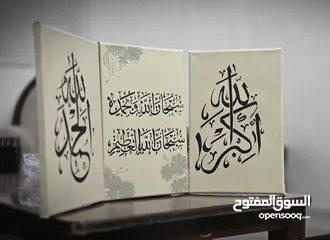 الله أكبر
سبحان الله وبحمده
سبحان الله العظيم
الحمد لله
السوق المفتوح
opensooq.com